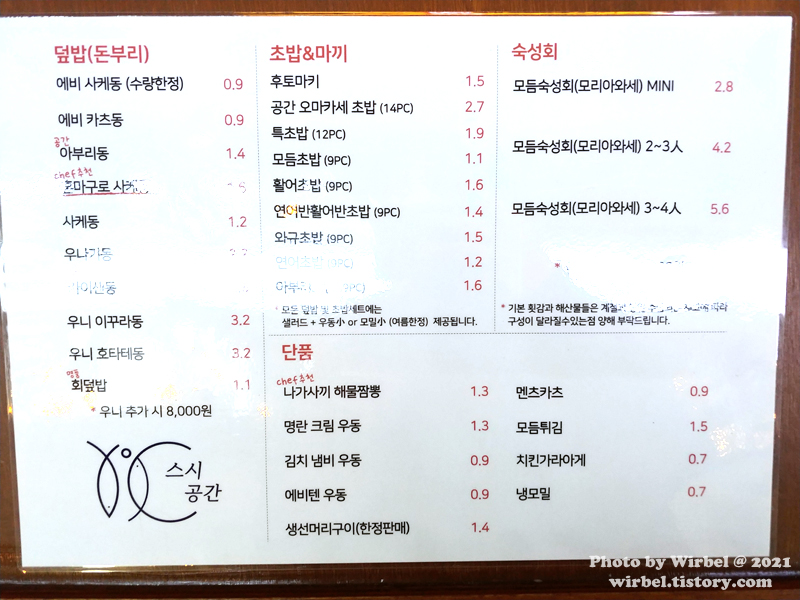 덮밥(돈부리)
에비 사케동 (수량한정) 0.9
에비 카츠동 0.9
공간
아부리동 1.4
chef추천
혼마구로 사케동
사케동 1.2
우나기동
우니 이꾸라동 3.2
우니 호타테동 3.2
명품
회덮밥 1.1
* 우니 추가 시 8,000원
스시
공간
초밥&마끼
후토마키 1.5
공간 오마카세 초밥 (14PC) 2.7
특초밥 (12PC) 1.9
모듬초밥 (9PC) 1.1
활어초밥 (9PC) 1.6
연어반활어반초밥 (9PC) 1.4
와규초밥 (9PC) 1.5
연어초밥 (9PC) 1.2
1.6
* 모든 덮밥 및 초밥세트에는
샐러드 + 우동小 or 모밀小 (여름한정) 제공됩니다.
숙성회
모듬숙성회(모리아와세) MINI 2.8
모듬숙성회(모리아와세) 2~3人 4.2
모듬숙성회(모리아와세) 3~4人 5.6
*
* 기본 횟감과 해산물들은 따라
구성이 달라질수있는점 양해 부탁드립니다.
단품
chef추천
나가사끼 해물짬뽕 1.3
명란 크림 우동 1.3
김치 냄비 우동 0.9
에비텐 우동 0.9
생선머리구이(한정판매) 1.4
멘츠카츠 0.9
모듬튀김 1.5
치킨가라아게 0.7
냉모밀 0.7
Photo by Wirbel @ 2021
wirbel.tistory.com